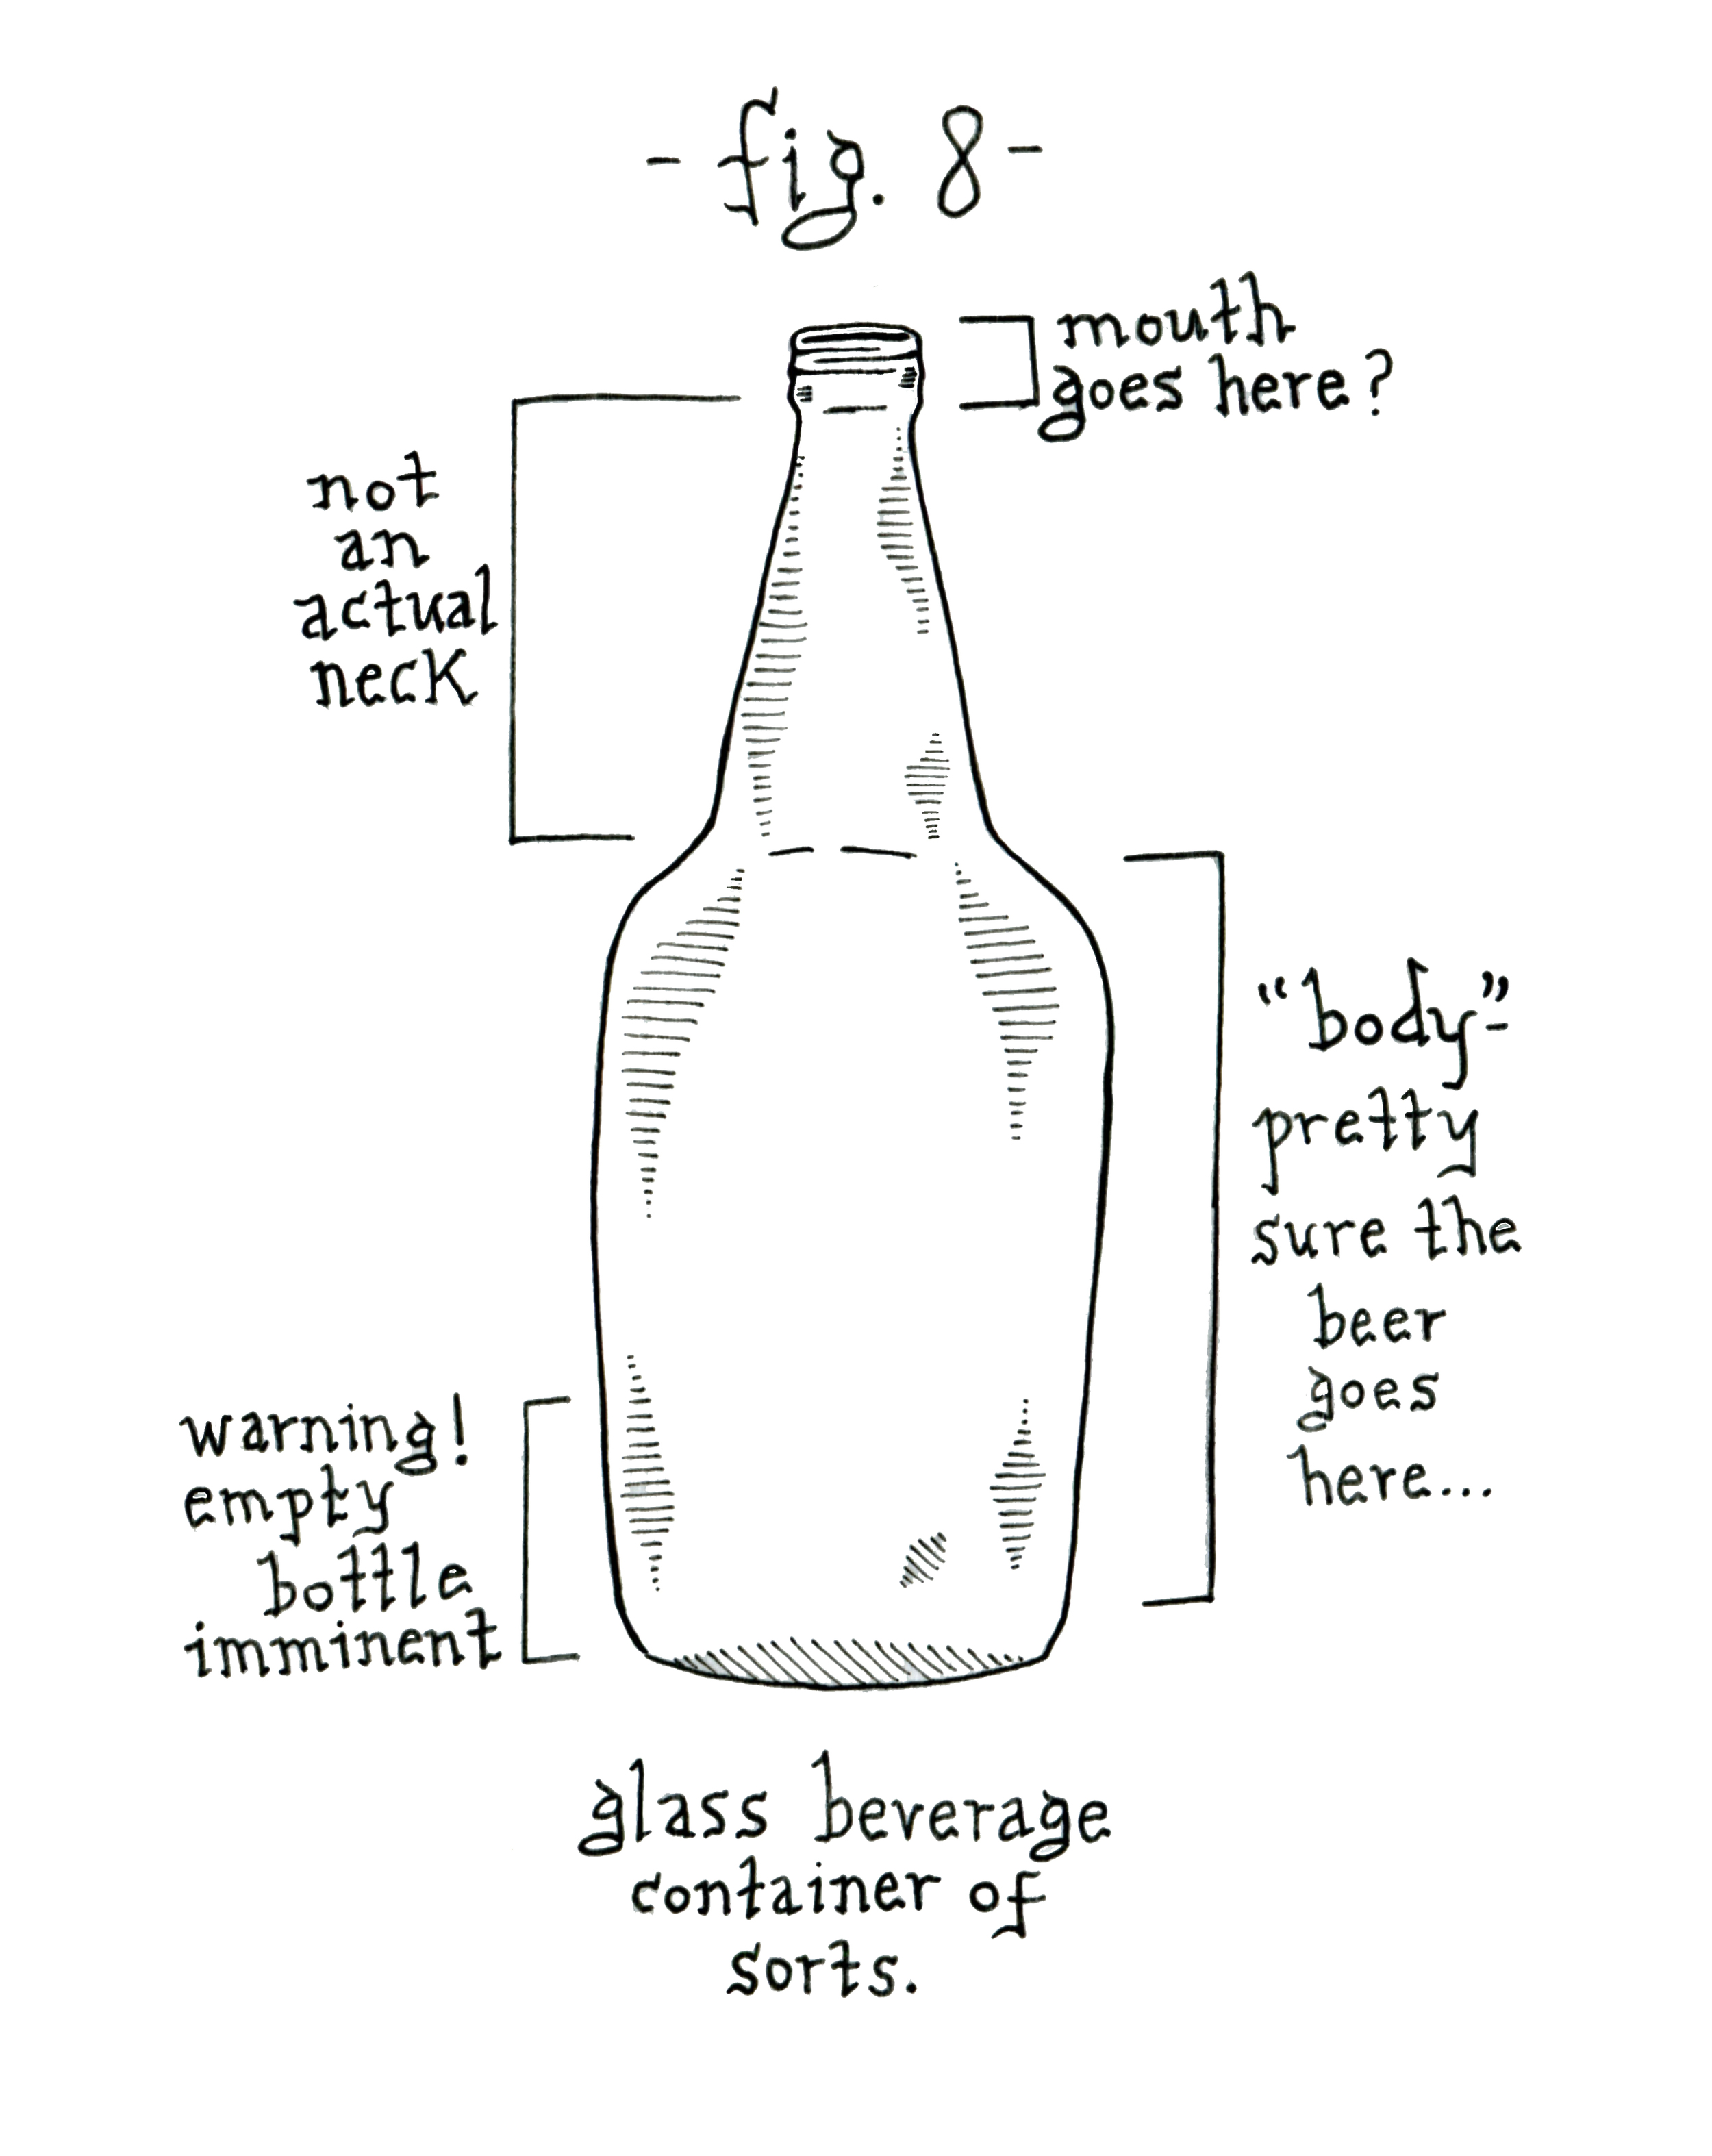 - fig. 8 -
mouth
goes here?
not
an
actual
neck
"body"-
pretty
sure the
beer
goes
here...
warning!
empty
bottle
imminent
glass beverage
container of
sorts.